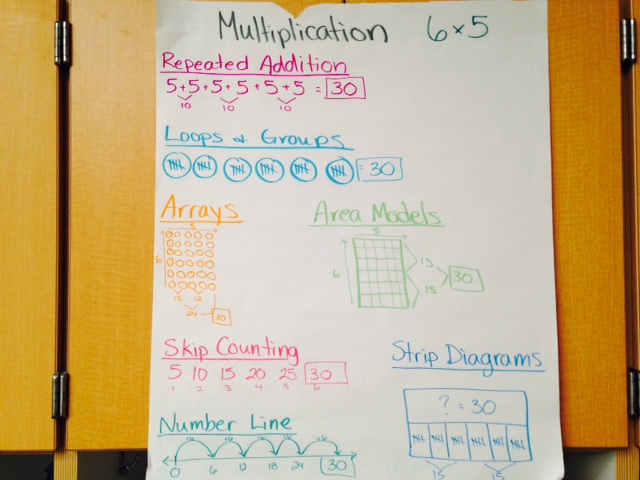 Multiplication 6 x 5
Repeated Addition
5 + 5 + 5 + 5 + 5 + 5 = 30
10 10 10
Loops & Groups
= 30
Arrays
5
6
12 12
24
30
Area Models
5
6
15
15
30
Skip Counting
5 10 15 20 25 30
1 2 3 4 5 6
Strip Diagrams
? = 30
15 15
Number Line
0 6 12 18 24 30